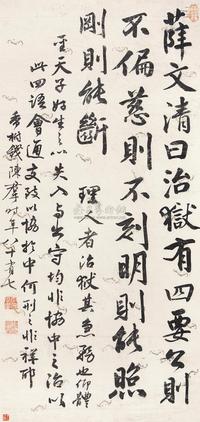 薛文清曰治獄有四要公則
不偏慈則不刻明則能照
剛則能斷 理者治獄其急務也仰體
聖天子好生之心失入与出守均非協中之治以
此四語會通文政以協於中何刑之非祥邢
香樹錢陳群時年八十有七